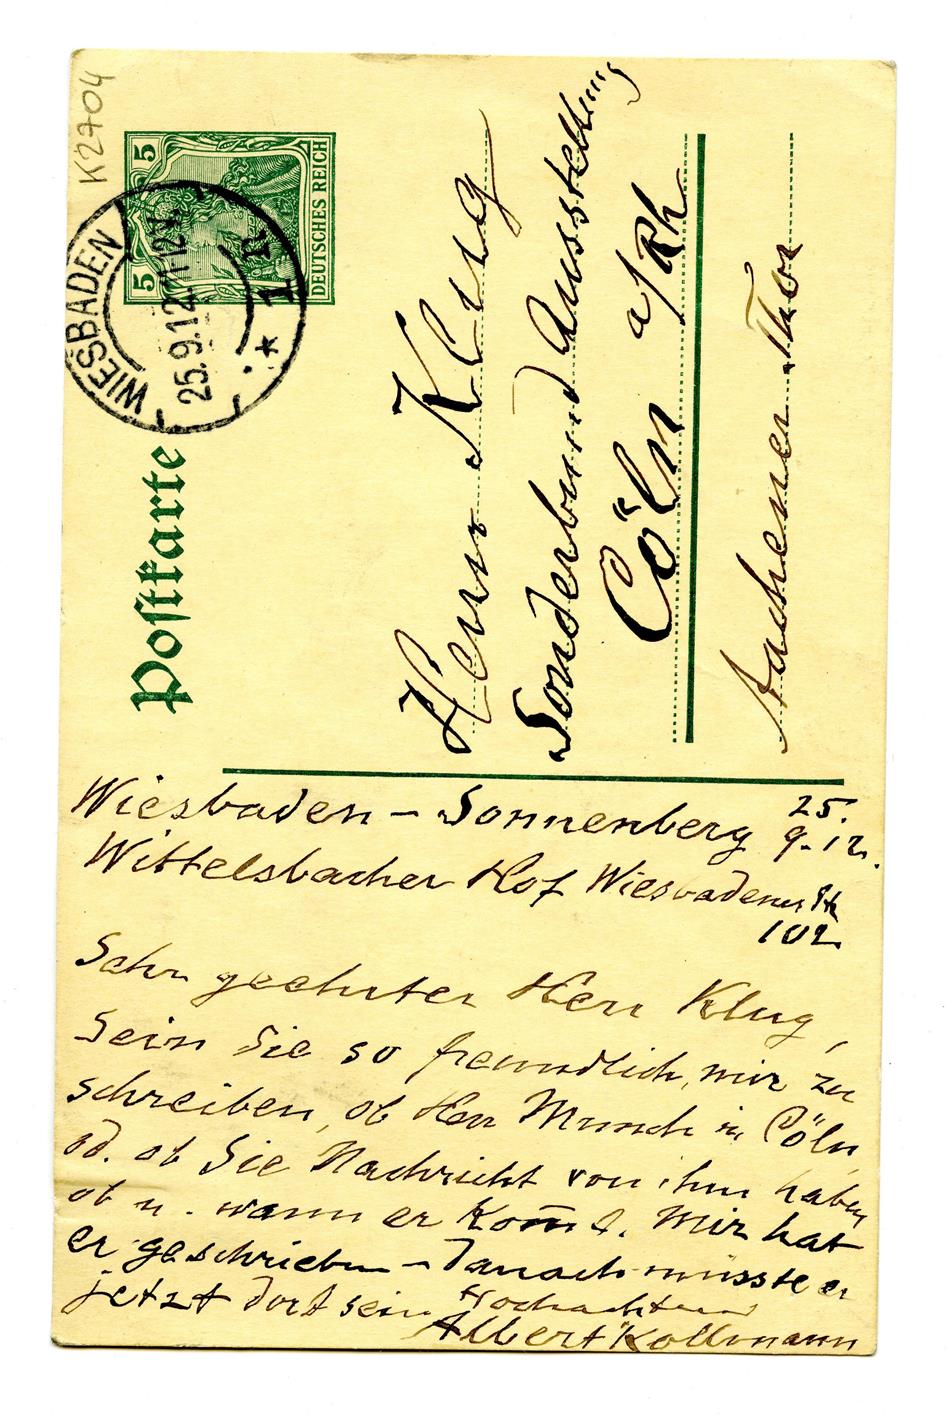 K2704
5 5
DEUTSCHES REICH
WIESBADEN
25.9.12.11-12V.
* 1 n
Postkarte
Herrn Klug
Sonderbund Ausstellung
Cöln a/Rh
Aachener Thor
Wiesbaden – Sonnenberg 25.
9.12.
Wittelsbacher Hof Wiesbadener Str
102
Sehr geehrter Herr Klug,
Sein Sie so freundlich, mir zu
schreiben, ob Herr Munch in Cöln
od. ob Sie Nachricht von ihm haben
ob u. wann er kom̄t. Mir hat
er geschrieben – danach müsste er
jetzt dort sein Hochachtend
Albert Kollmann